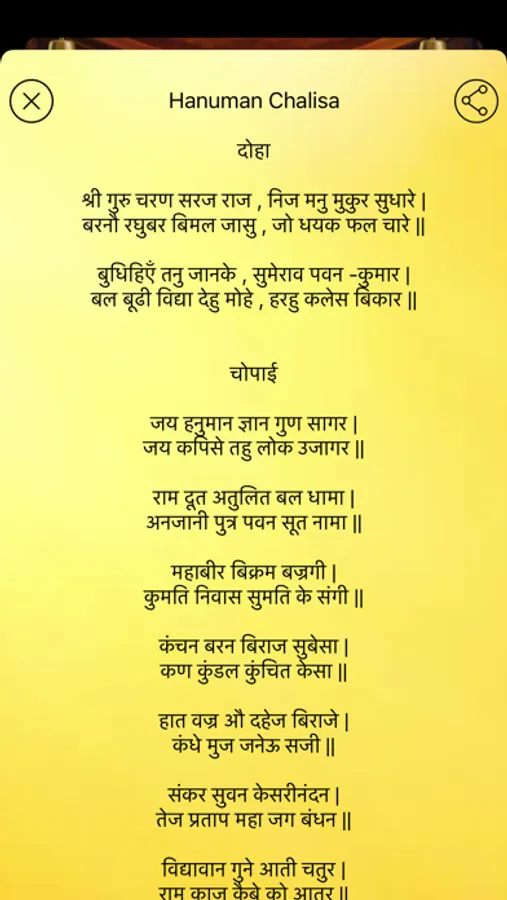 Hanuman Chalisa
दोहा
श्री गुरु चरण सरज राज , निज मनु मुकुर सुधारे |
बरनौ रघुबर बिमल जासु , जो धयक फल चारे ||
बुधिहिएँ तनु जानके , सुमेराव पवन -कुमार |
बल बूढी विद्या देहु मोहे , हरहु कलेस बिकार ||
चोपाई
जय हनुमान ज्ञान गुण सागर |
जय कपिसे तहु लोक उजागर ||
राम दूत अतुलित बल धामा |
अनजानी पुत्र पवन सूत नामा ||
महाबीर बिक्रम बज्रगी |
कुमति निवास सुमति के संगी ||
कंचन बरन बिराज सुबेसा |
कण कुंडल कुंचित केसा ||
हात वज्र औ दहेज बिराजे |
कंधे मुज जनेऊ सजी ||
संकर सुवन केसरीनंदन |
तेज प्रताप महा जग बंधन ||
विद्यावान गुने आती चतुर |
राम काज कैबे को आतुर ||